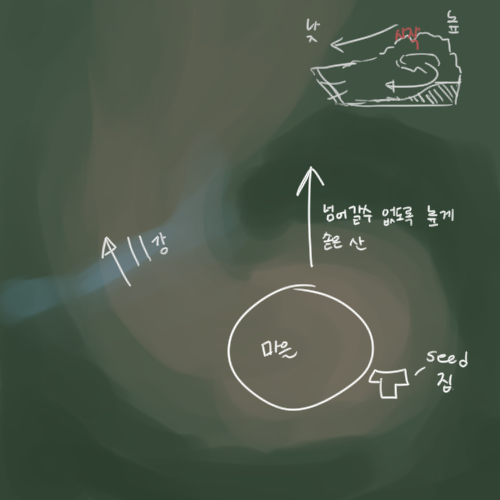 낮
높
시작
넘어갈수 없도록 높게
솟은 산
강
마을
seed
집